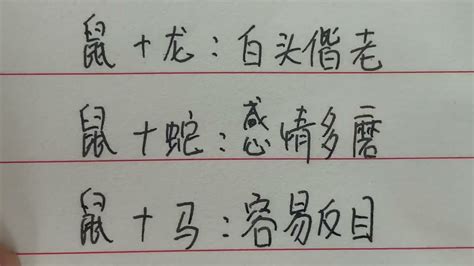 鼠+龙：白头偕老
鼠+蛇：感情多磨
鼠+马：容易反目